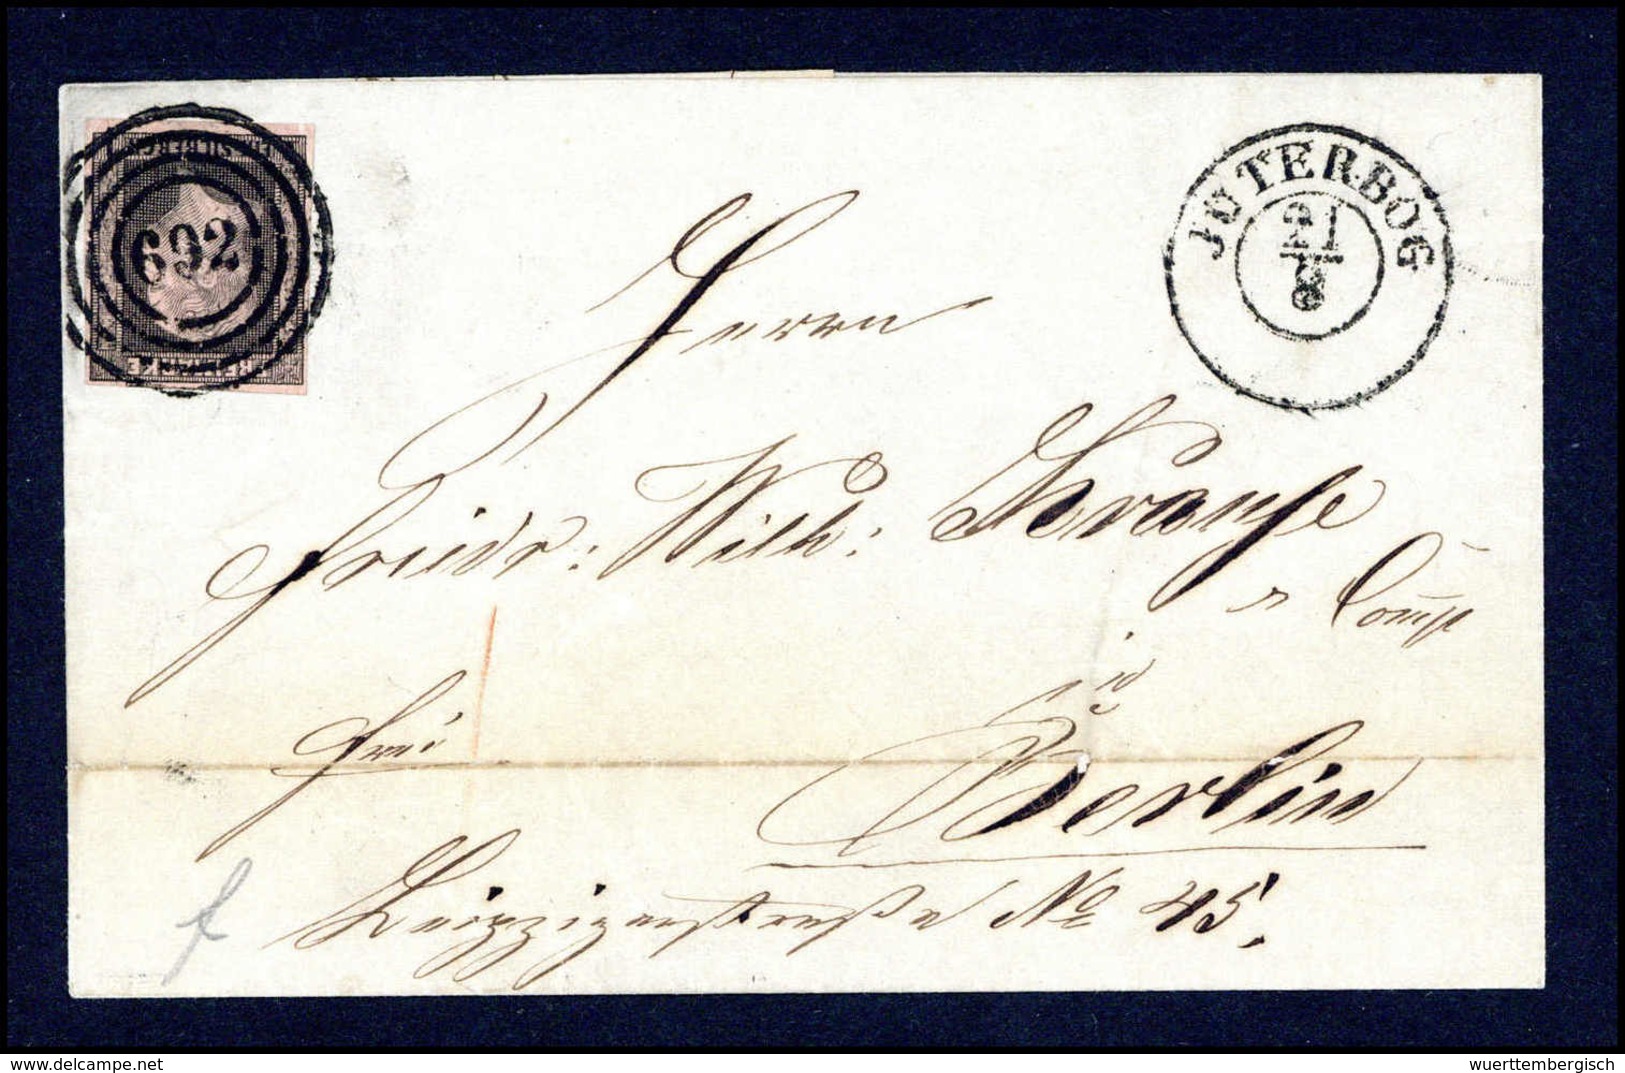 SILBERGR.
692
FREIMARKE
JUTERBOG
21
6
Herrn
Friedr: Wilh: Krause
& Comp
in
frei
Berlin
Leipzigerstraße No 45.
delcampe.net
wuerttembergisch